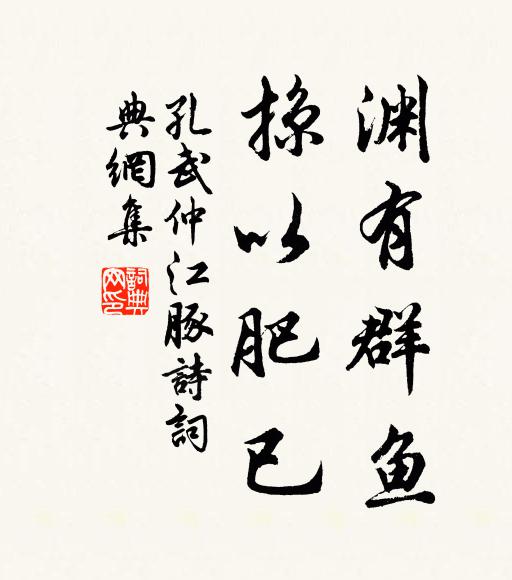 渊有群鱼
掠以肥已
孔武仲江豚詩詞
典網集
詞典网印